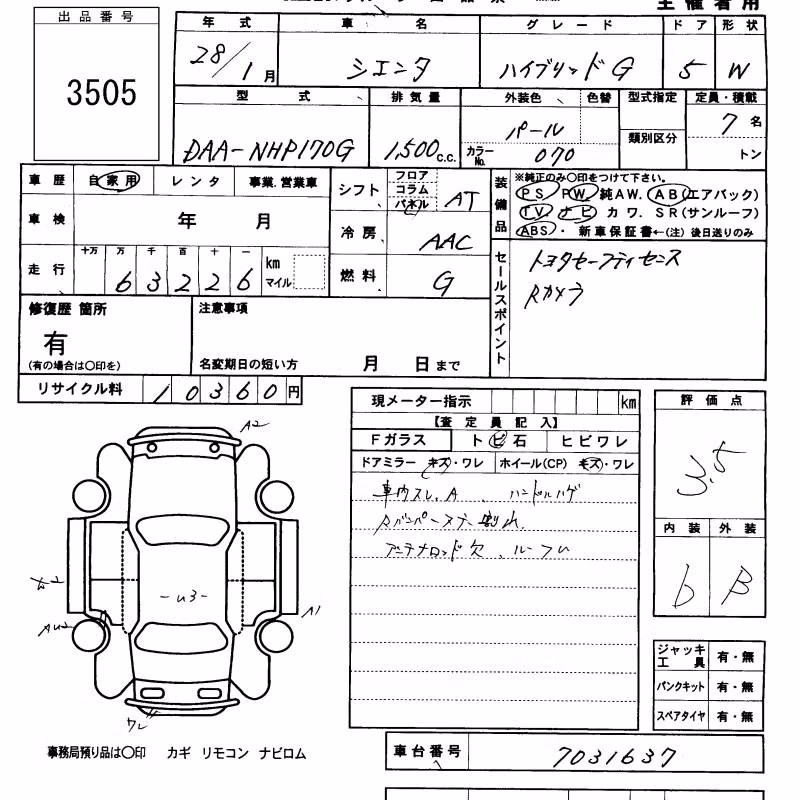 出品番号
3505
年式 車名 グレード ドア 形状
28/1月 シエンタ ハイブリッドG 5 W
型式 排気量 外装色 色替 型式指定 定員・積載
DAA-NHP170G 1,500c.c. パール 7名
カラーNo. 070 類別区分 トン
車歴 自家用 レンタ 事業.営業車
シフト フロア コラム パネル AT
車検 年 月
冷房 AAC
走行 十万 万 千 百 十 一
63226 km マイル
燃料 G
装備品
※純正のみ〇印をつけて下さい。
PS PW. 純AW. AB(エアバック)
TV. ナビ カワ. SR(サンルーフ)
ABS・ 新車保証書←(注) 後日送りのみ
セールスポイント
トヨタセーフティセンス
Rカメラ
修復歴 箇所
有
(有の場合は〇印を)
注意事項
名変期日の短い方 月 日まで
リサイクル料 10360円
現メーター指示 km
【査定員記入】
Fガラス トビ石 ヒビワレ
ドアミラー キズ・ワレ ホイール(CP) キズ・ワレ
車内スレ.A ハンドルハゲ
Rバンパーステー割れ
アンテナロッド欠
評価点
3.5
内装 外装
b B
A2
-U3-
A1
AU2
ワレ
ジャッキ工具 有・無
パンクキット 有・無
スペアタイヤ 有・無
事務局預り品は〇印 カギ リモコン ナビロム
車台番号 7031637